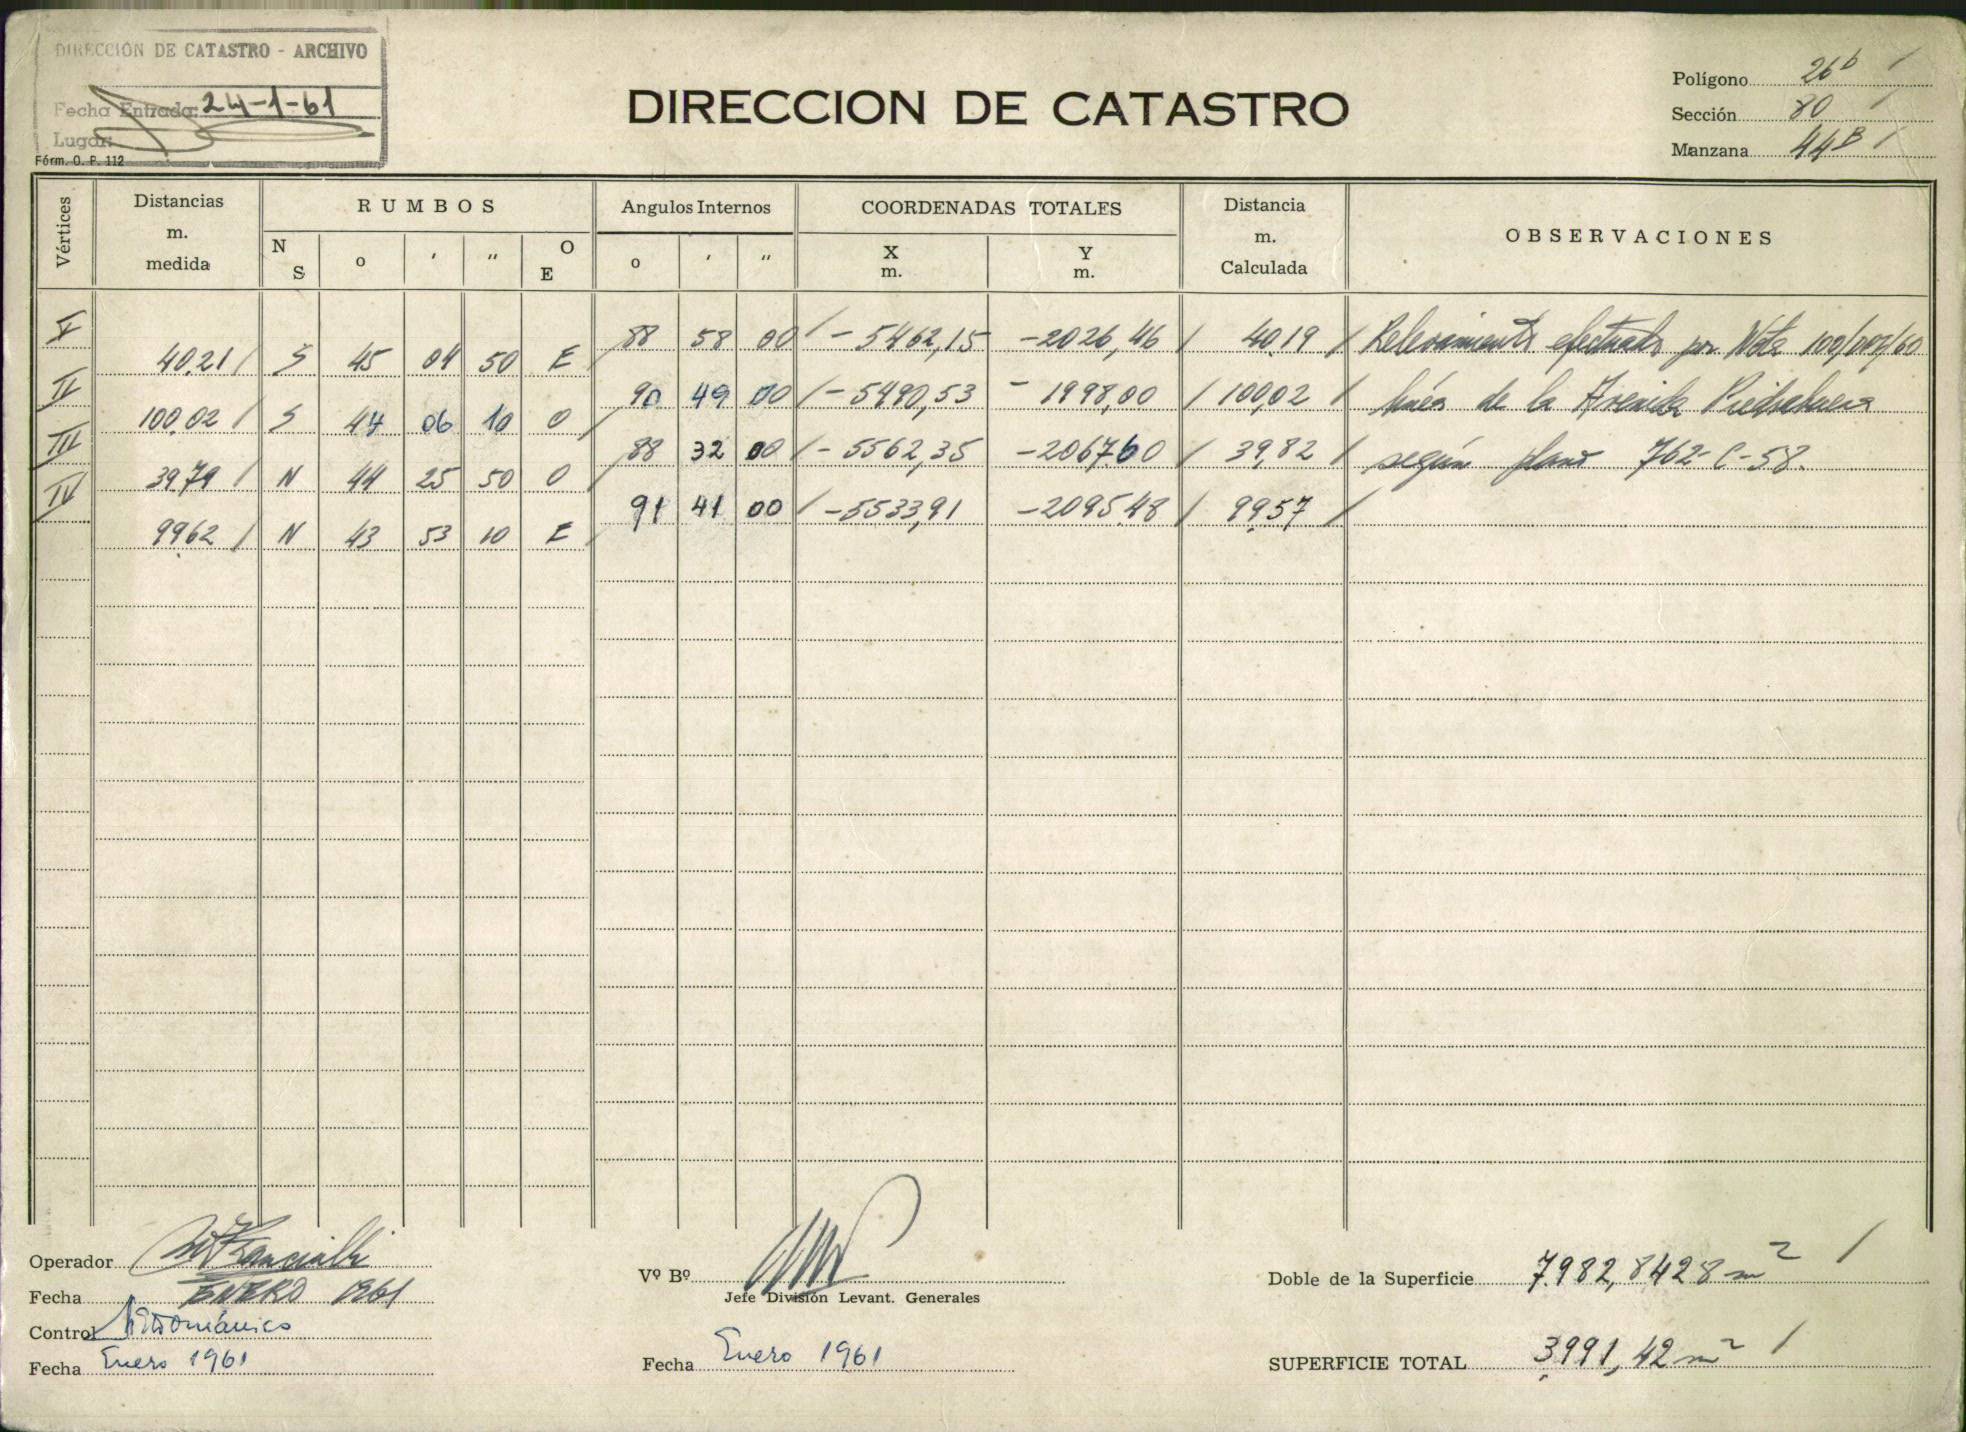 DIRECCION DE CATASTRO - ARCHIVO
Fecha Entrada: 24-1-61
Lugar:
Fórm. O. P. 112
DIRECCION DE CATASTRO
Polígono 26b /
Sección 80 /
Manzana 44B /
Vértices Distancias m. medida RUMBOS Angulos Internos COORDENADAS TOTALES Distancia m. Calculada OBSERVACIONES
N S o ' " O E o ' " X m. Y m.
88 58 00 / - 5462,15 -2026,46 / 40,19 / Relevamiento efectuado por Nota
40.21 / S 45 04 50 E /
II 90 49 00 / - 5490,53 - 1998,00 / 100,02 / línea de la Avenida Piedrabuena
100.02 / S 44 06 10 O /
III 88 32 00 / - 5562,35 -2067,60 / 39,82 / según plano 762-C-58.
39.79 / N 44 25 50 O /
IV 91 41 00 / -5533,91 -2095,48 / 99,57 /
99.62 / N 43 53 10 E /
Operador
Fecha ENERO 1961
Control
Fecha Enero 1961
Vº Bº
Jefe División Levant. Generales
Fecha Enero 1961
Doble de la Superficie 7.982,8428 m2 /
SUPERFICIE TOTAL 3.991,42 m2 /